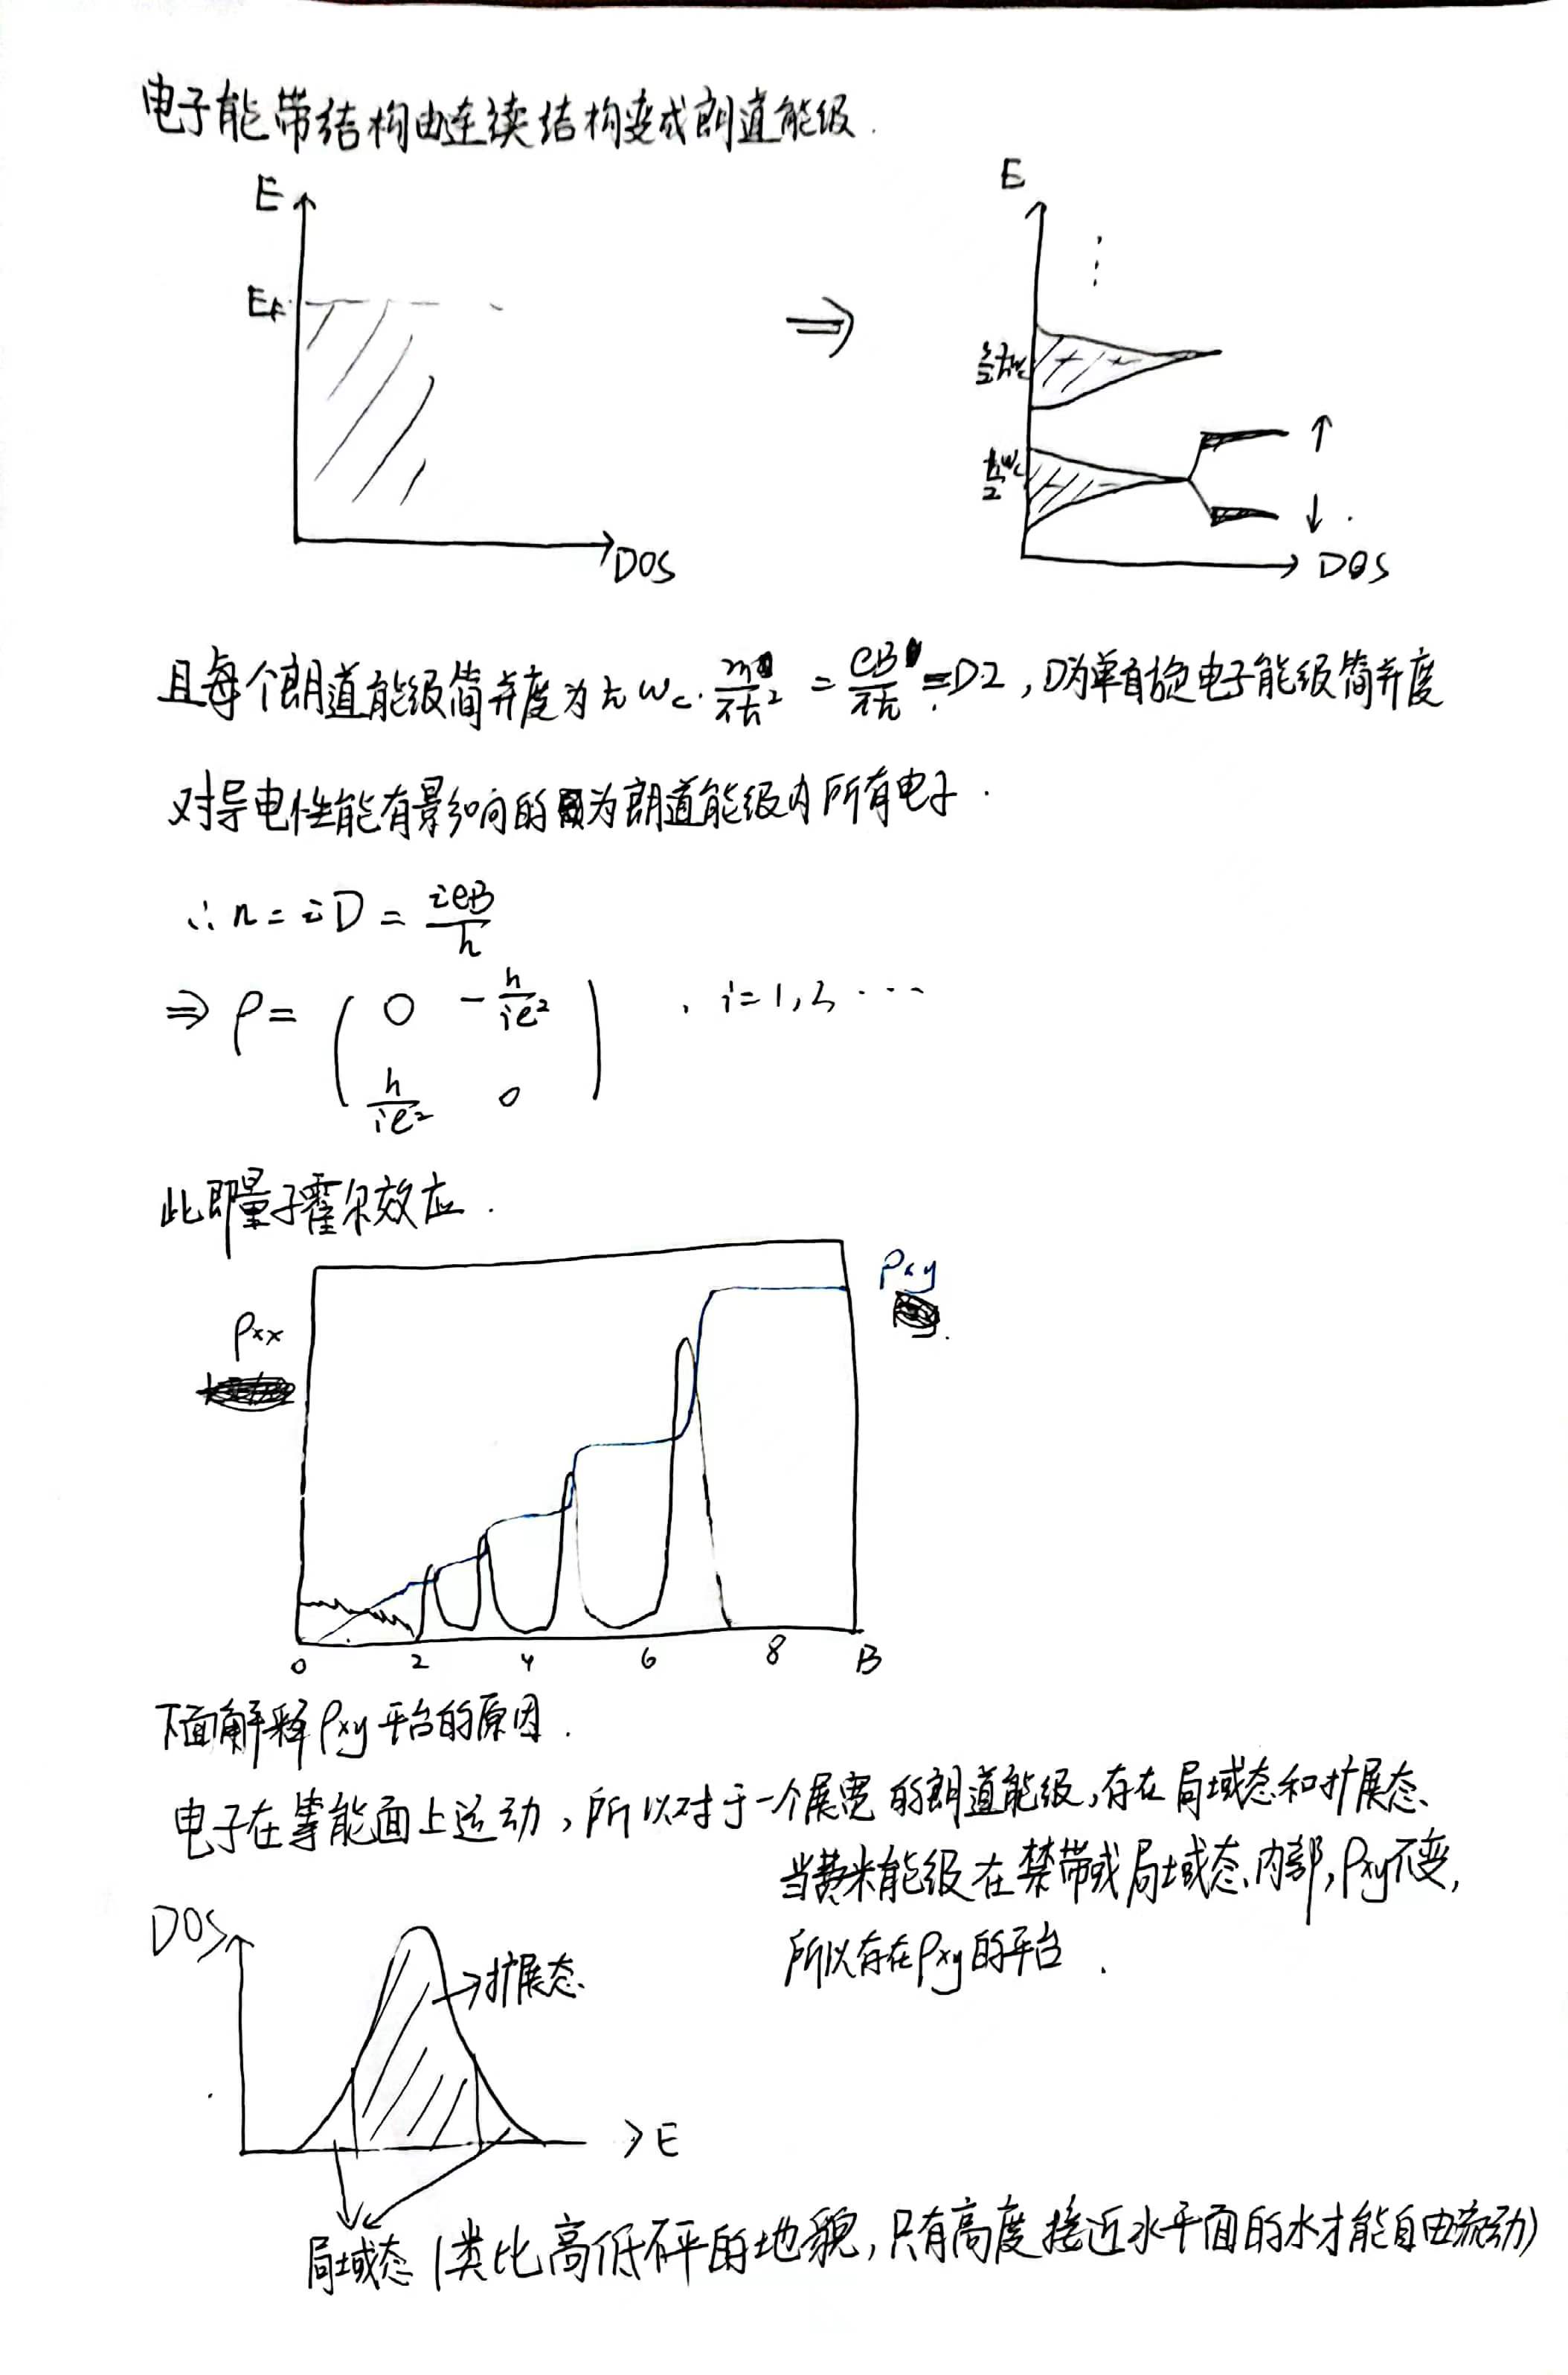 电子能带结构由连续结构变成朗道能级.
E
E
E_F
⇒
⋮
3/2 ħω_c
ħω_c/2
↑
↓
DOS
DOS
且每个朗道能级简并度为 ħω_c · m/πħ² = eB/πħ = D2, D为单自旋电子能级简并度
对导电性能有影响的为朗道能级内所有电子.
∴ n = iD = ieB/h
⇒ ρ = ( 0  -h/ie²
h/ie²  0 ) , i=1,2 ···
此即量子霍尔效应.
ρxx
ρxy
0 2 4 6 8 B
下面解释ρxy平台的原因.
电子在等能面上运动,所以对于一个展宽的朗道能级,存在局域态和扩展态.
当费米能级在禁带或局域态内部,ρxy不变,
所以存在ρxy的平台.
DOS
扩展态
E
局域态 (类比高低不平的地貌,只有高度接近水平面的水才能自由流动)